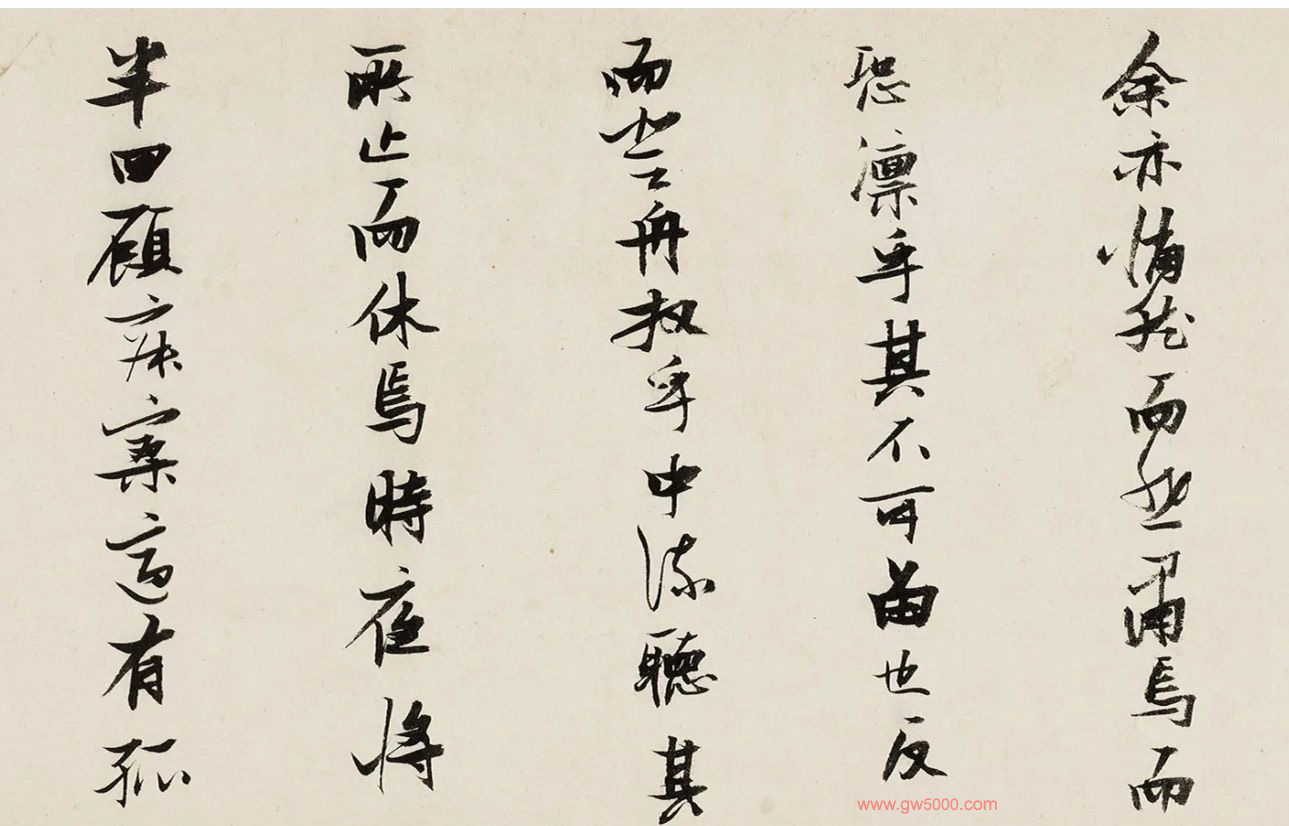 余亦悄然而悲肅焉而
恐凛乎其不可留也反
而登舟放乎中流聽其
所止而休焉時夜將
半四顧寂寥適有孤
www.gw5000.com